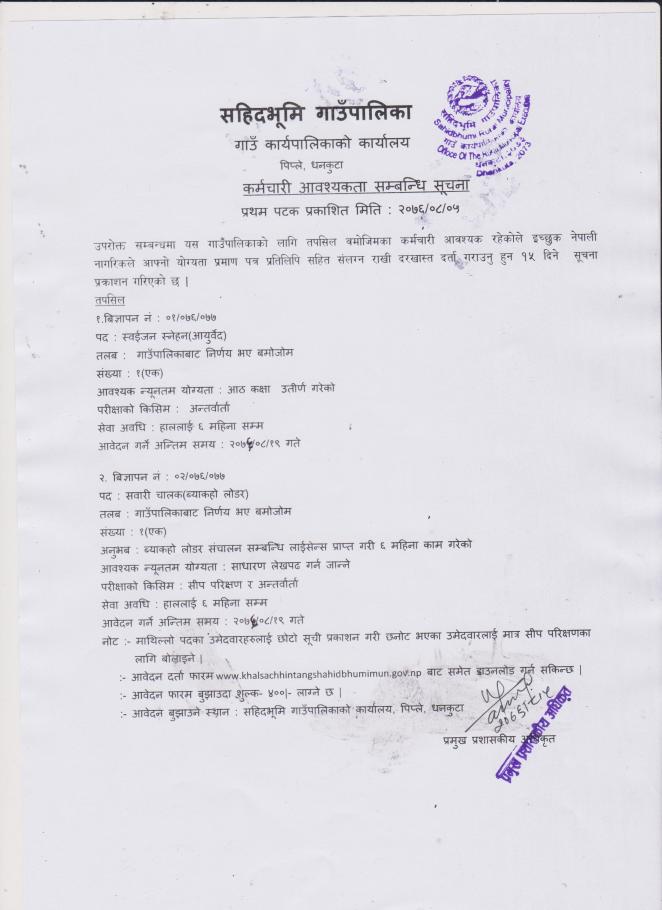 सहिदभूमि गाउँपालिका
गाउँ कार्यपालिकाको कार्यालय
पिप्ले, धनकुटा
कर्मचारी आवश्यकता सम्बन्धि सूचना
प्रथम पटक प्रकाशित मिति : २०७६/०८/०५
सहिदभूमि गाउँपालिका
Sahidbhumi Rural Municipality
गाउँ कार्यपालिकाको कार्यालय
Office Of The Rural Municipal Executive
Dhankuta, 2073
उपरोक्त सम्बन्धमा यस गाउँपालिकाको लागि तपसिल वमोजिमका कर्मचारी आवश्यक रहेकोले इच्छुक नेपाली
नागरिकले आफ्नो योग्यता प्रमाण पत्र प्रतिलिपि सहित संलग्न राखी दरखास्त दर्ता गराउनु हुन १५ दिने सूचना
प्रकाशन गरिएको छ |
तपसिल
१.बिज्ञापन नं : ०१/०७६/०७७
पद : स्वईजन स्नेहन(आयुर्वेद)
तलब : गाउँपालिकाबाट निर्णय भए बमोजोम
संख्या : १(एक)
आवश्यक न्यूनतम योग्यता : आठ कक्षा उतीर्ण गरेको
परीक्षाको किसिम : अन्तर्वार्ता
सेवा अवधि : हाललाई ६ महिना सम्म
आवेदन गर्ने अन्तिम समय : २०७६/०८/१९ गते
२. बिज्ञापन नं : ०२/०७६/०७७
पद : सवारी चालक(ब्याकहो लोडर)
तलब : गाउँपालिकाबाट निर्णय भए बमोजोम
संख्या : १(एक)
अनुभब : ब्याकहो लोडर संचालन सम्बन्धि लाईसेन्स प्राप्त गरी ६ महिना काम गरेको
आवश्यक न्यूनतम योग्यता : साधारण लेखपढ गर्न जान्ने
परीक्षाको किसिम : सीप परिक्षण र अन्तर्वार्ता
सेवा अवधि : हाललाई ६ महिना सम्म
आवेदन गर्ने अन्तिम समय : २०७६/०८/१९ गते
नोट :- माथिल्लो पदका उमेदवारहरुलाई छोटो सूची प्रकाशन गरी छनोट भएका उमेदवारलाई मात्र सीप परिक्षणका
लागि बोलाइने |
:- आवेदन दर्ता फारम www.khalsachhintangshahidbhumimun.gov.np बाट समेत डाउनलोड गर्न सकिन्छ |
:- आवेदन फारम बुझाउदा शुल्क- ४००|- लाग्ने छ |
:- आवेदन बुझाउने स्थान : सहिदभूमि गाउँपालिकाको कार्यालय, पिप्ले, धनकुटा
प्रमुख प्रशासकीय अधिकृत
प्रमुख प्रशासकीय अधिकृत